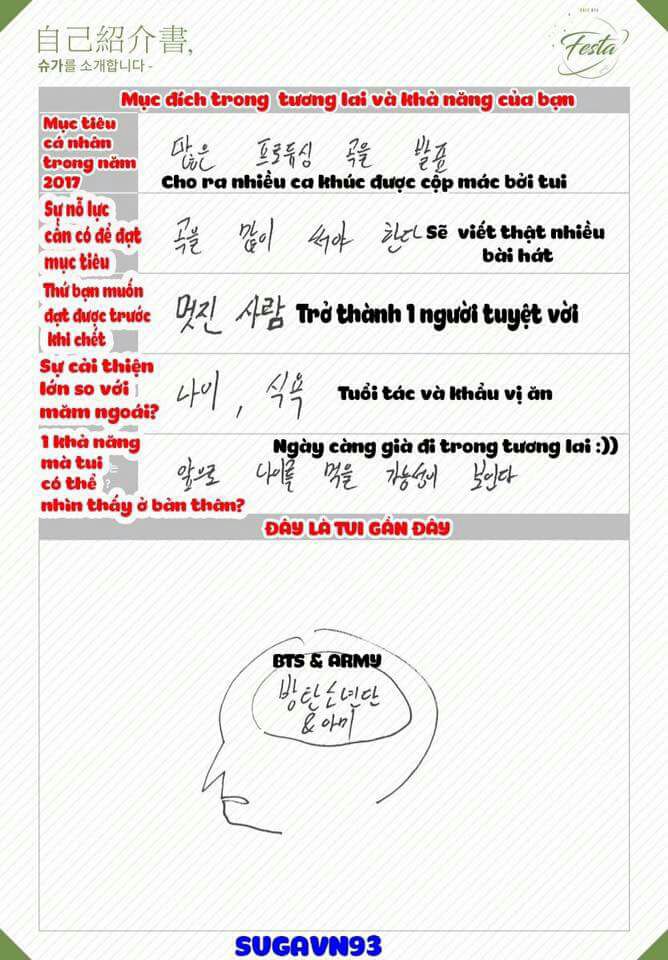 自己紹介書,
슈가를 소개합니다 -
Festa
Mục đích trong tương lai và khả năng của bạn
Mục tiêu
cá nhân
trong năm
2017
많은 프로듀싱 곡을 발표
Cho ra nhiều ca khúc được cộp mác bởi tui
Sự nỗ lực
cần có để đạt
mục tiêu
곡을 많이 써야 한다
Sẽ viết thật nhiều
bài hát
Thứ bạn muốn
đạt được trước
khi chết
멋진 사람
Trở thành 1 người tuyệt vời
Sự cải thiện
lớn so với
măm ngoái?
나이, 식욕
Tuổi tác và khẩu vị ăn
1 khả năng
mà tui
có thể
nhìn thấy ở bản thân?
Ngày càng già đi trong tương lai :))
앞으로 나이를 먹을 가능성이 보인다
ĐÂY LÀ TUI GẦN ĐÂY
BTS & ARMY
방탄소년단
& 아미
SUGAVN93